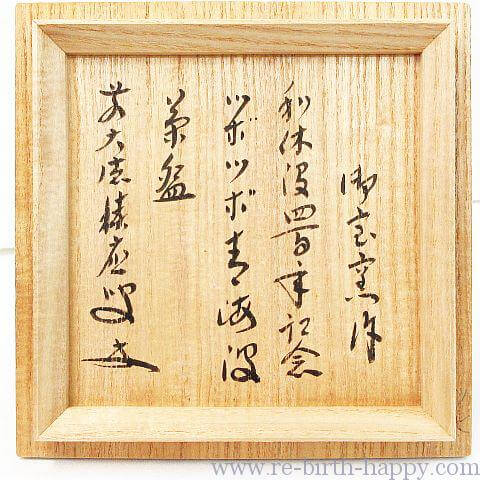 御室窯作
利休没四百年記念
ツボツボ青海波
茶盌
前大徳
www.re-birth-happy.com